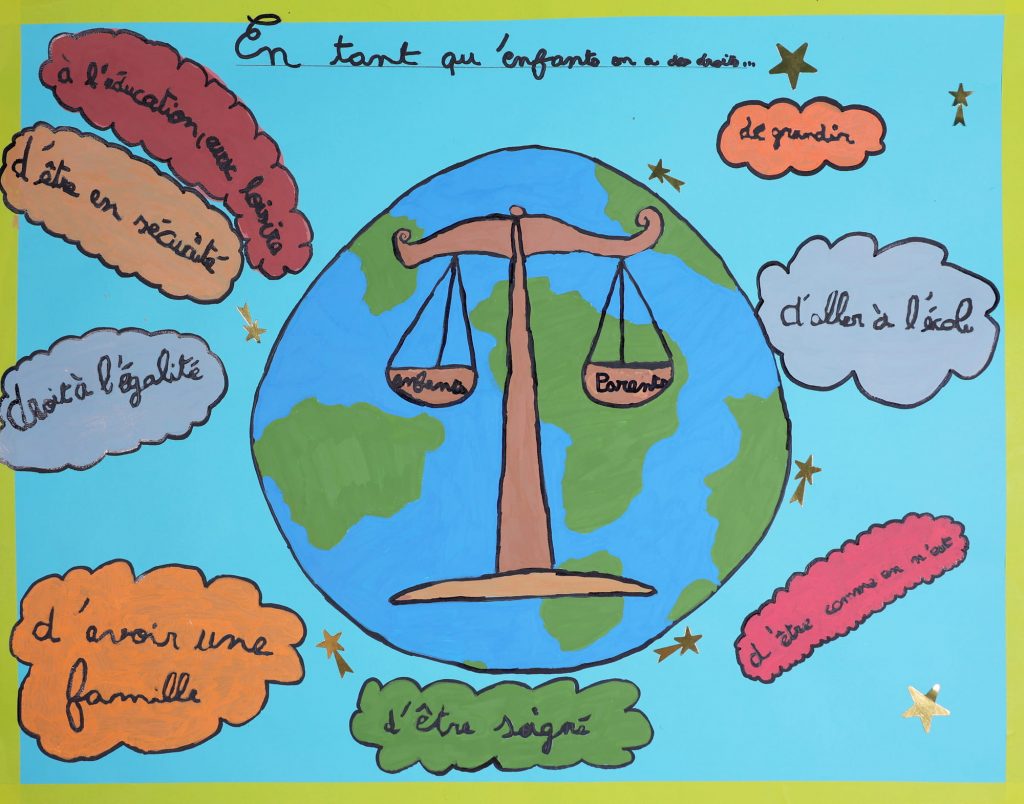 En tant qu'enfants on a des droits...
à l'éducation, aux loisirs
de grandir
d'être en sécurité
d'aller à l'école
droit à l'égalité
enfants
Parents
d'être comme on n'est
d'avoir une
famille
d'être soigné